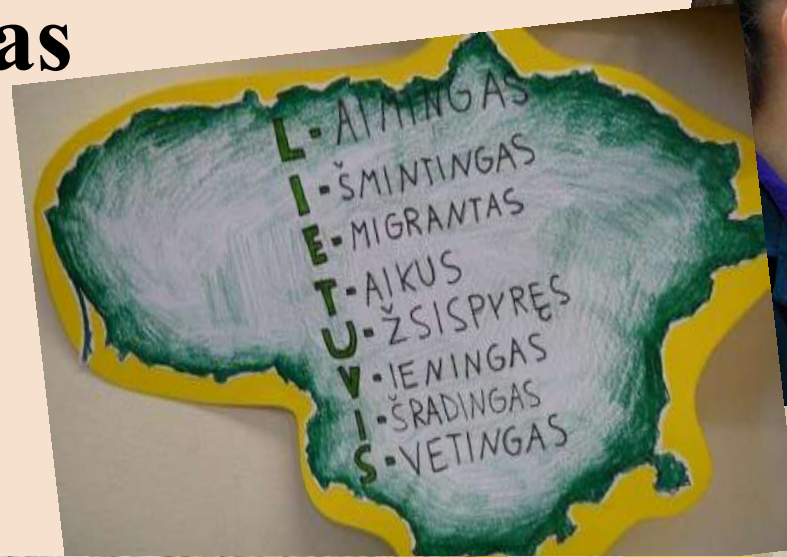 as
L-AIMINGAS
I-ŠMINTINGAS
E-MIGRANTAS
T-AIKUS
U-ŽSISPYRĘS
V-IENINGAS
I-ŠRADINGAS
S-VETINGAS